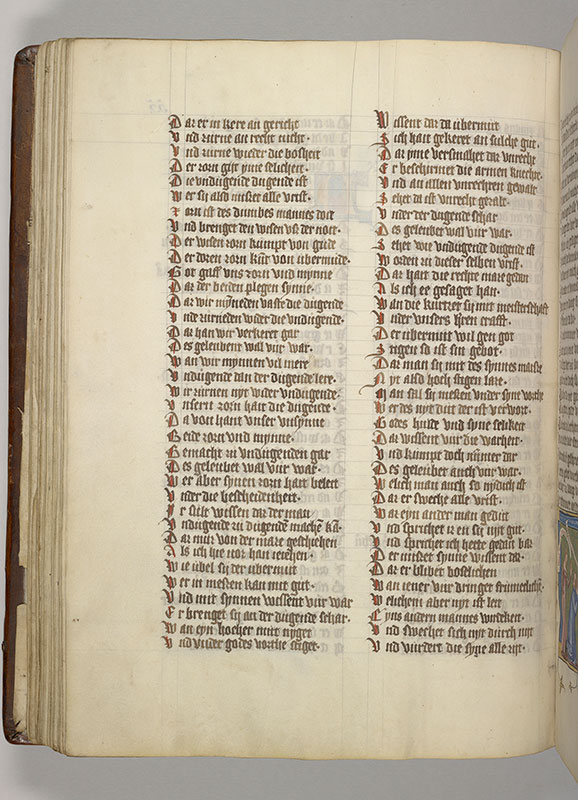 Dar er in kere an gericht
Vnd zurne an recht nicht·
Vnd zurne wieder die bosheit
Der zorn gift yme selicheit·
Die vndugende dugende ist
Wer sij alsus mit alle vrist·
Zorn ist des dumbes mannes doit
Vnd brenget den wisen vs der noit·
Der wisen zorn kumpt von gude
Der doren zorn kumt von vbermude·
Got giff vns zorn vnd mynne
Dar der beiden plegen synne·
Dar wir mynneden vaste die dugende
Vnde zurneden weder die vndugende·
Dar han wir verkeret gar
Des geleubent wal vur war·
Wan wir mynnen vil mere
Vndugende dan der dugende lere·
Wir zurnen nyt weder vndugende·
Vnsern zorn hait die dugende·
Da von hant vnser vnsynne
Beide zorn vnd mynne·
Gemacht zu vndugenden gar
Des geleubet wal vur war·
Wer aber synen zorn hait beleit
Vnder die bescheidenheit·
Ir sult wissen dar der man
Vndugende zu dugende machen kan·
Dar mir von der mare geschiehen
Als ich hie vor han iehen·
Wie ubel sij der vbermut
Wer in messen kan mit gut·
Vnd mit synnen wissent vur war
Er brenget sij an der dugende schar·
Wan eyn hocher mut nyget
Vnd vnder godes vorchte stiget·
Wissent dar da vbermut
Sich hait gekeret an sulche gut·
Dar yme versmahet dar vnrecht
Er beschirmet die armen knechte·
Vnd an allen vnrechten gewalt
Sehe da ist vnrecht gezalt·
Vnder der dugend schar
Des geleubet wal vur war·
Sehet wie vndugende dugende ist
Worden zu dieser selben vrist·
Dar hait die rechte mare gedan
Als ich ee gesaget han·
Wan die kurtzet sij mit meisterschaft
Vnder vnsers heren crafft·
Der vbermut wil gen got
Stigen so ist sin gebot·
Dar man sij mit des synnes meister
Nyt also hoch stigen lare·
Man sal sij messen vnder syne vorchte
Wer des nyt duit der ist verwort·
Godes hulde vnd syne selikeit
Dar wissent vur die warheit·
Vnd kumpt doch nummer dar
Des geleubet auch vur war·
Welich man auch so nydich ist
Dar er swechet alle vrist·
War eyn ander man geduit
Vnd sprichet iz en sij nyt gut·
Vnd sprechet ich hette gedan baz
Der mit der synne wissent daz
Dar er blibet boselichen
Wan iener vur dringet frumeclichen·
Welichem aber nyt ist leit
Eyns andern mannes wirdekeit·
Vnd swechet sich nyt durch nyt
Vnd vurdert die syne alle zijt·